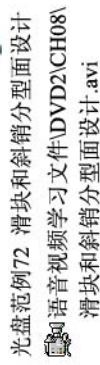 光盘范例72 滑块和斜销分型面设计
语音视频学习文件\DVD2\CH08\
滑块和斜销分型面设计.avi